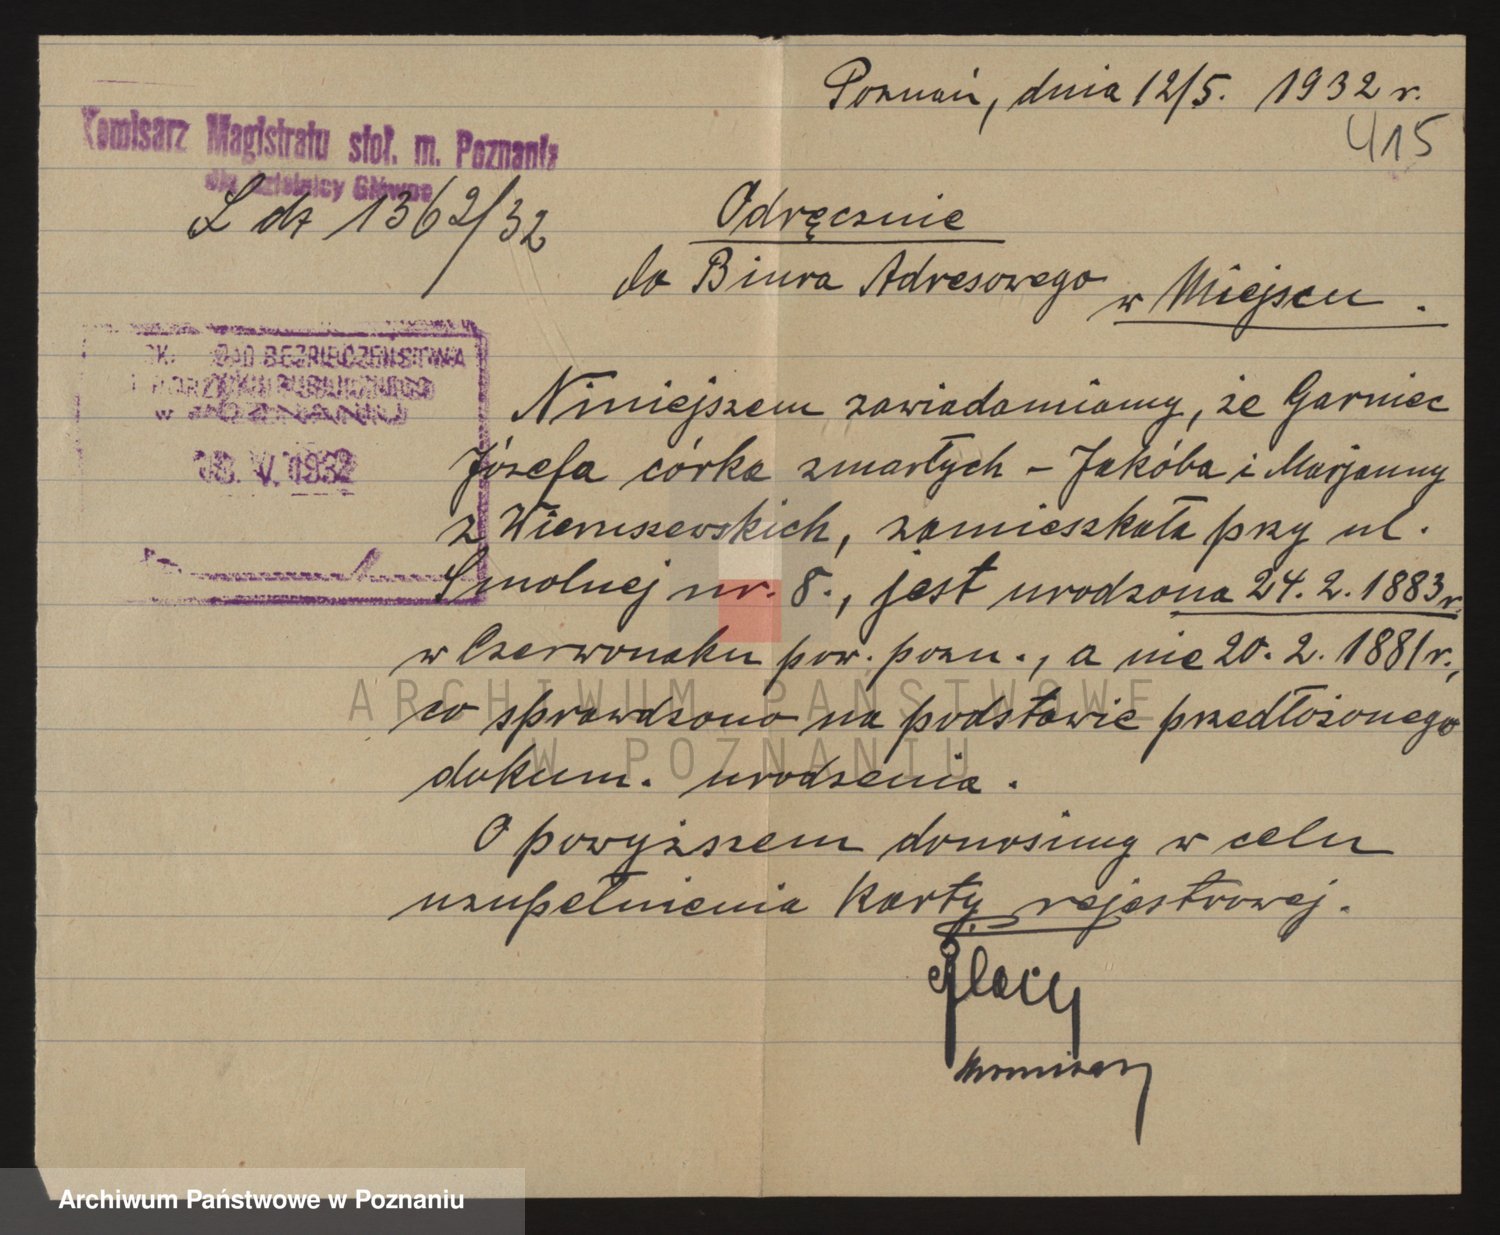 Poznań, dnia 12/5. 1932 r.
415
Komisarz Magistratu stoł. m. Poznania
dla dzielnicy Główna
L dz 1362/32
Odręcznie
do Biura Adresowego
w Miejscu.
BEZPIECZEŃSTWA
PUBLICZNEGO
w POZNANIU
V. 1932
Niniejszem zawiadamiamy, że Garniec
Józefa córka zmarłych – Jakóba i Marjanny
z Wieruszewskich, zamieszkała przy ul.
Smolnej nr. 8., jest urodzona 24. 2. 1883 r.
w Czerwonaku pow. pozn., a nie 20. 2. 1881 r.,
co sprawdzono na podstawie przedłożonego
dokum. urodzenia.
O powyższem donosimy w celu
uzupełnienia Karty rejestrowej.
Komisarz
ARCHIWUM PAŃSTWOWE
W POZNANIU
Archiwum Państwowe w Poznaniu